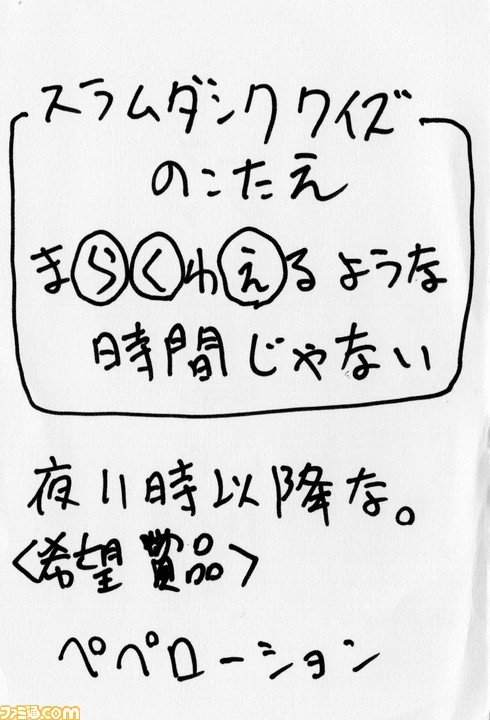 スラムダンククイズ
のこたえ
まらくわえるような
時間じゃない
夜11時以降な。
<希望賞品>
ペペローション
ファミ通com